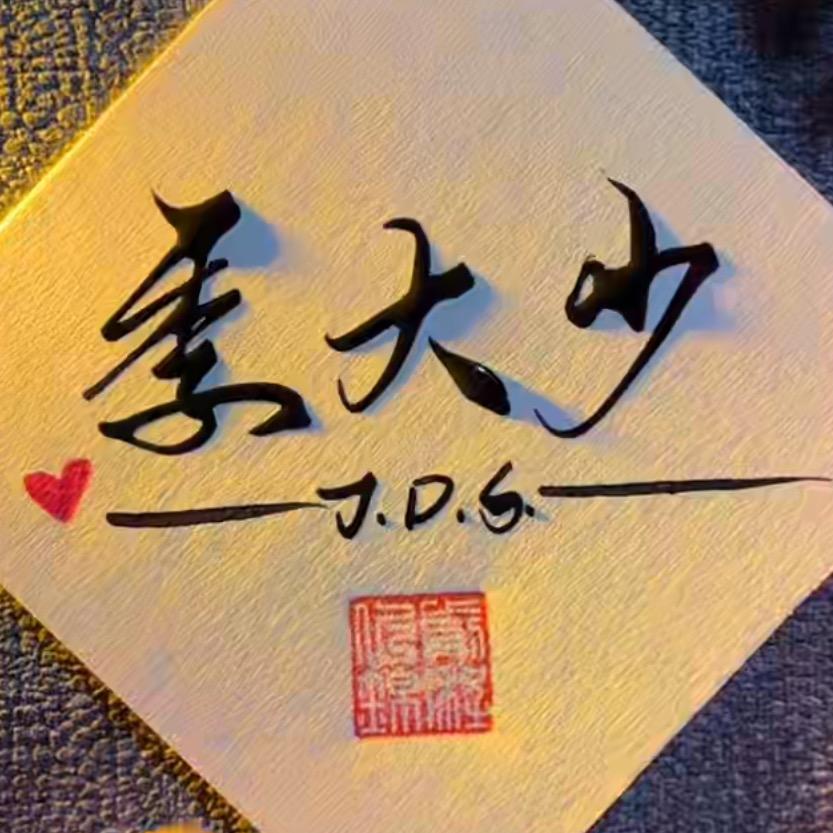 季大少
J.D.S.